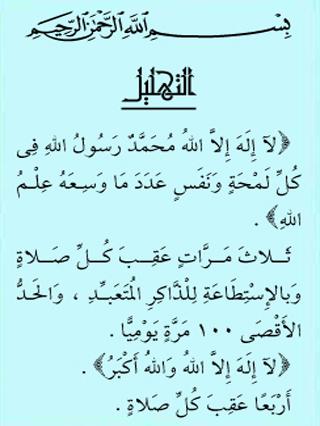 بِسْمِ اللهِ الرَّحْمٰنِ الرَّحِيْمِ
التهليل
﴿لآ إِلَهَ إِلاَّ اللهُ مُحَمَّدٌ رَسُولُ اللهِ فِى
كُلِّ لَمْحَةٍ وَنَفَسٍ عَدَدَ مَا وَسِعَهُ عِلْمُ
اللهِ﴾ .
ثَـلاثَ مَـرَّاتٍ عَقِـبَ كُـلِّ صَـلاةٍ
وَبالإِسْتِطَاعَةِ لِلْذَّاكِرِ الْمُتَعَبِّـدِ ، وَالحَـدُّ
الأَقْصَى ١٠٠ مَرَّةٍ يَوْمِيًّا .
﴿لآ إِلَهَ إِلاَّ اللهُ وَاللهُ أَكْبَرُ﴾ .
أَرْبَعًا عَقِبَ كُلِّ صَلاةٍ .